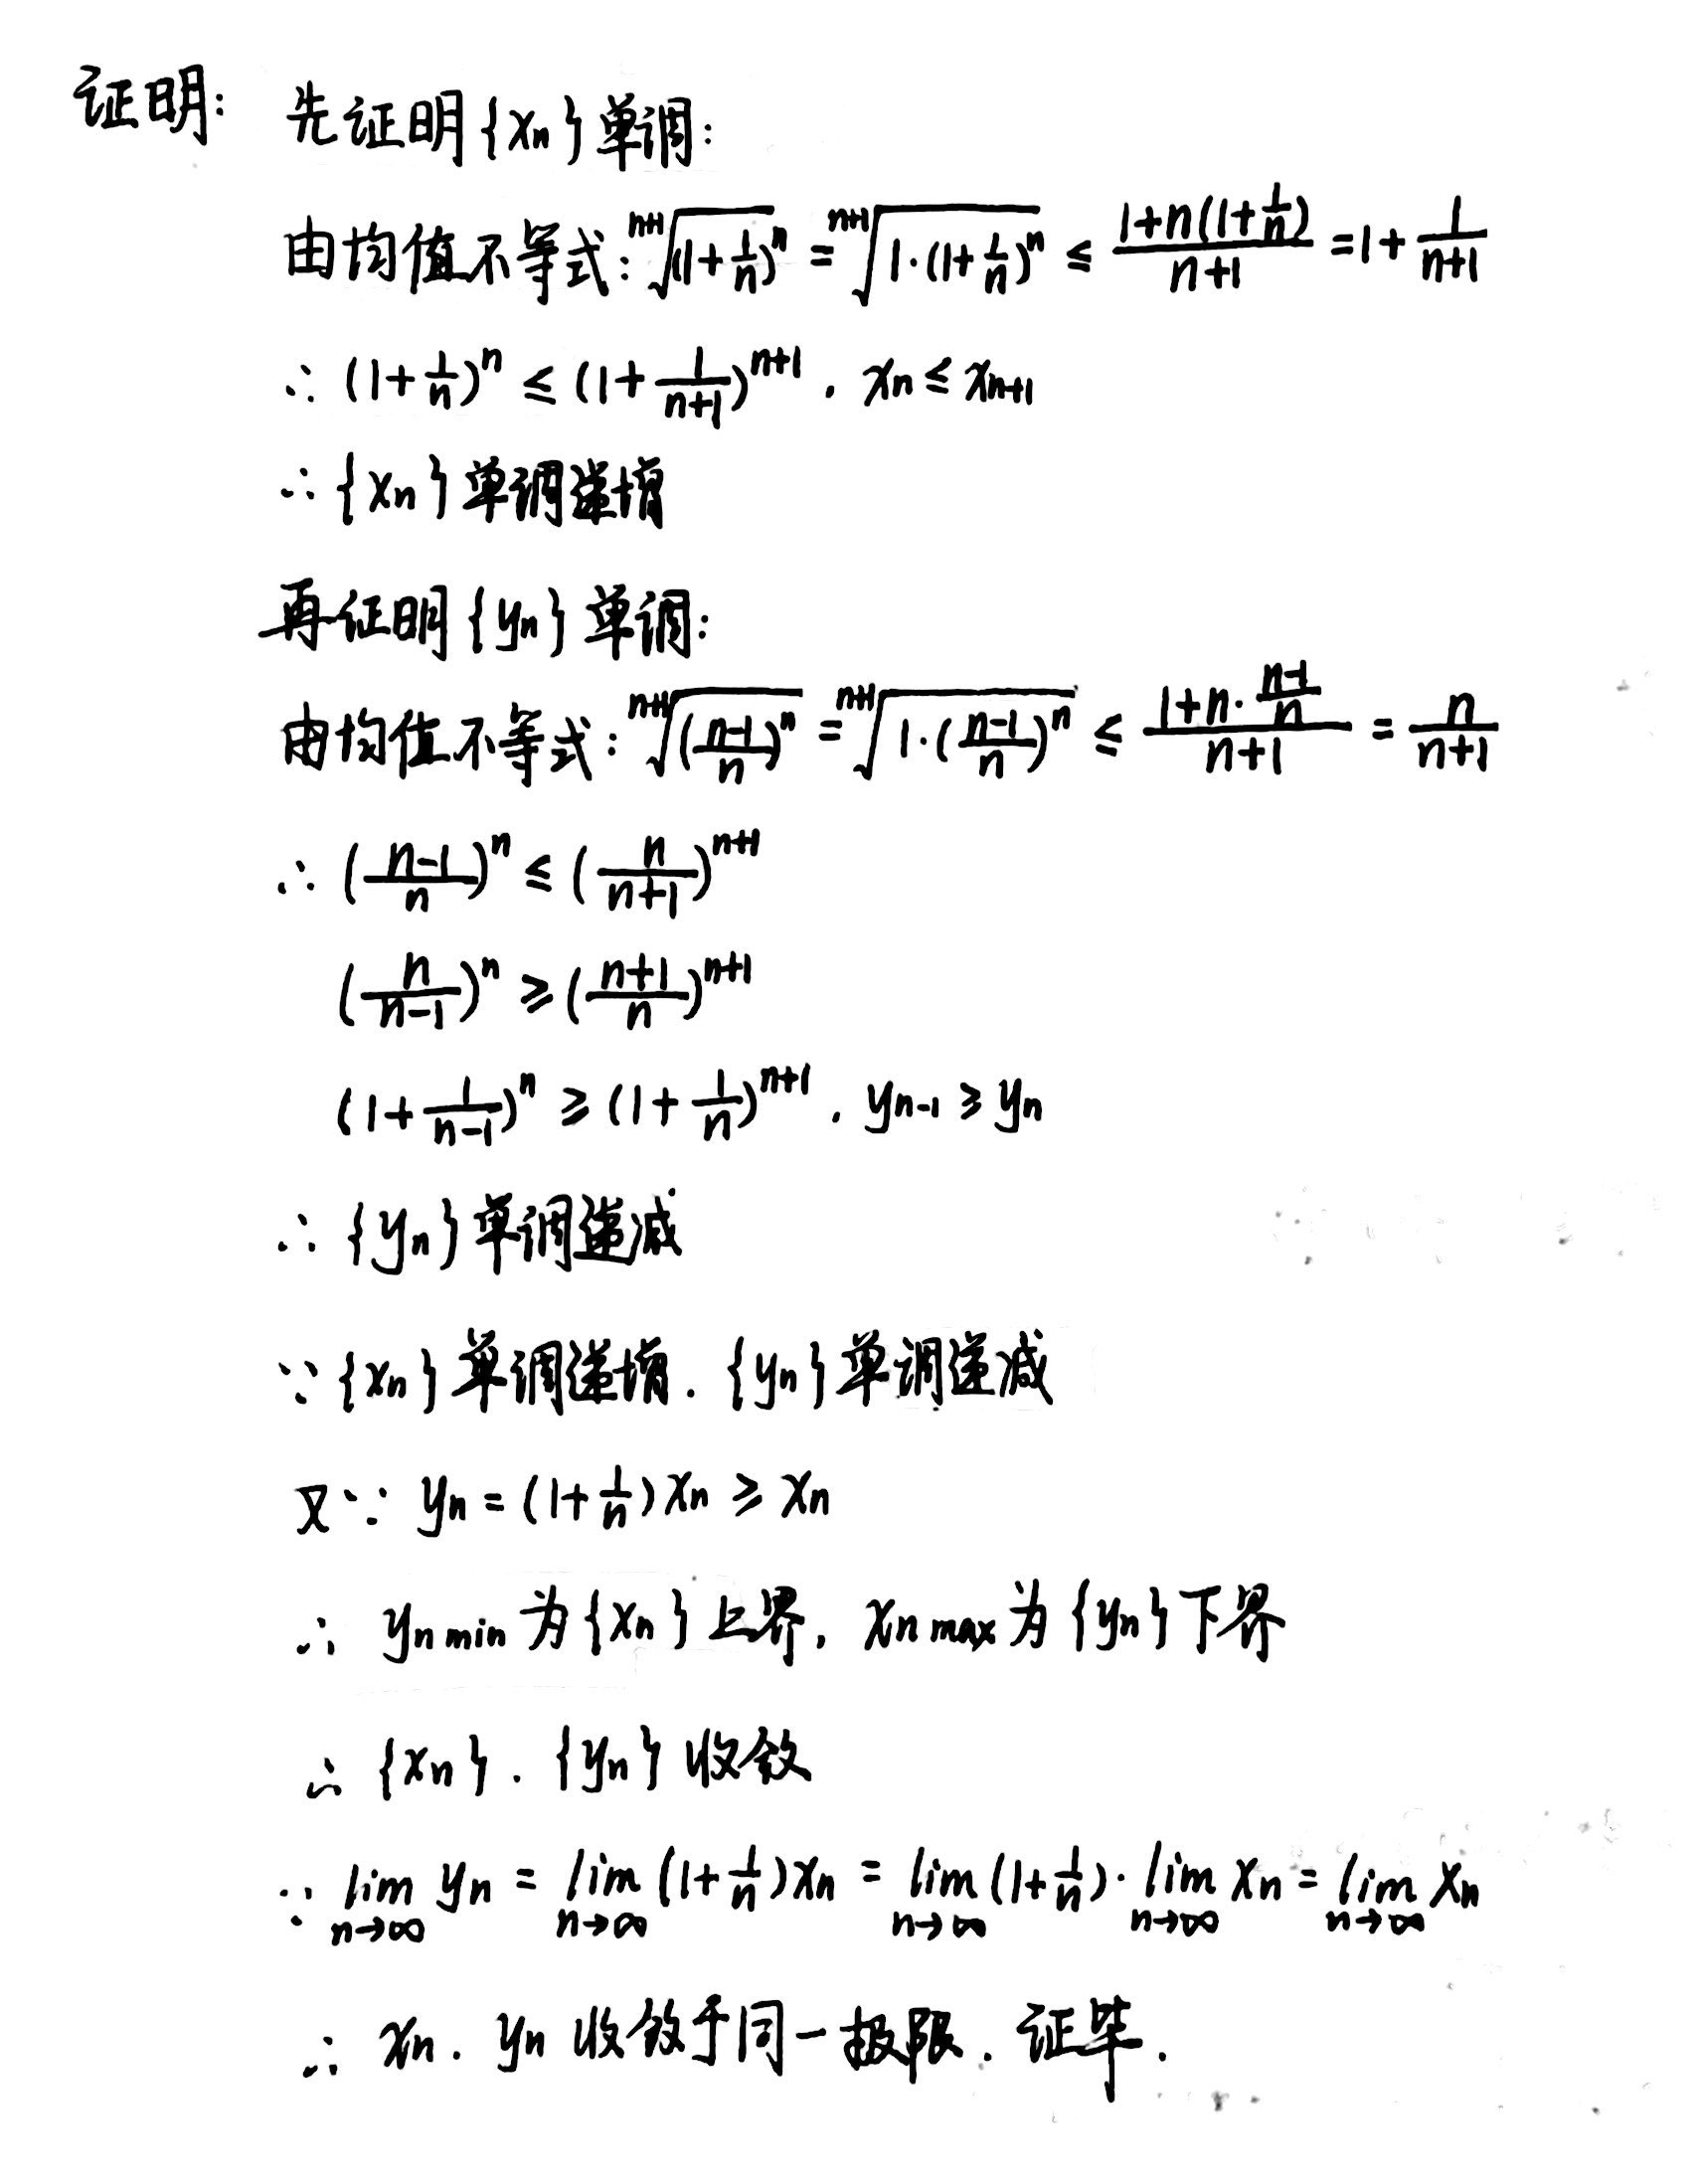 证明: 先证明{xₙ}单调:
由均值不等式: ⁿ⁺¹√((1+1/n)ⁿ) = ⁿ⁺¹√(1·(1+1/n)ⁿ) ≤ (1+n(1+1/n))/(n+1) = 1+1/(n+1)
∴ (1+1/n)ⁿ ≤ (1+1/(n+1))ⁿ⁺¹, xₙ ≤ xₙ₊₁
∴ {xₙ}单调递增
再证明{yₙ}单调:
由均值不等式: ⁿ⁺¹√(((n-1)/n)ⁿ) = ⁿ⁺¹√(1·((n-1)/n)ⁿ) ≤ (1+n·(n-1)/n)/(n+1) = n/(n+1)
∴ ((n-1)/n)ⁿ ≤ (n/(n+1))ⁿ⁺¹
(n/(n-1))ⁿ ≥ ((n+1)/n)ⁿ⁺¹
(1+1/(n-1))ⁿ ≥ (1+1/n)ⁿ⁺¹, yₙ₋₁ ≥ yₙ
∴ {yₙ}单调递减
∵ {xₙ}单调递增, {yₙ}单调递减
又∵ yₙ = (1+1/n)xₙ ≥ xₙ
∴ yₙ min 为{xₙ}上界, xₙ max 为{yₙ}下界
∴ {xₙ}, {yₙ}收敛
∵ lim n→∞ yₙ = lim n→∞ (1+1/n)xₙ = lim n→∞ (1+1/n)·lim n→∞ xₙ = lim n→∞ xₙ
∴ xₙ, yₙ 收敛于同一极限. 证毕.